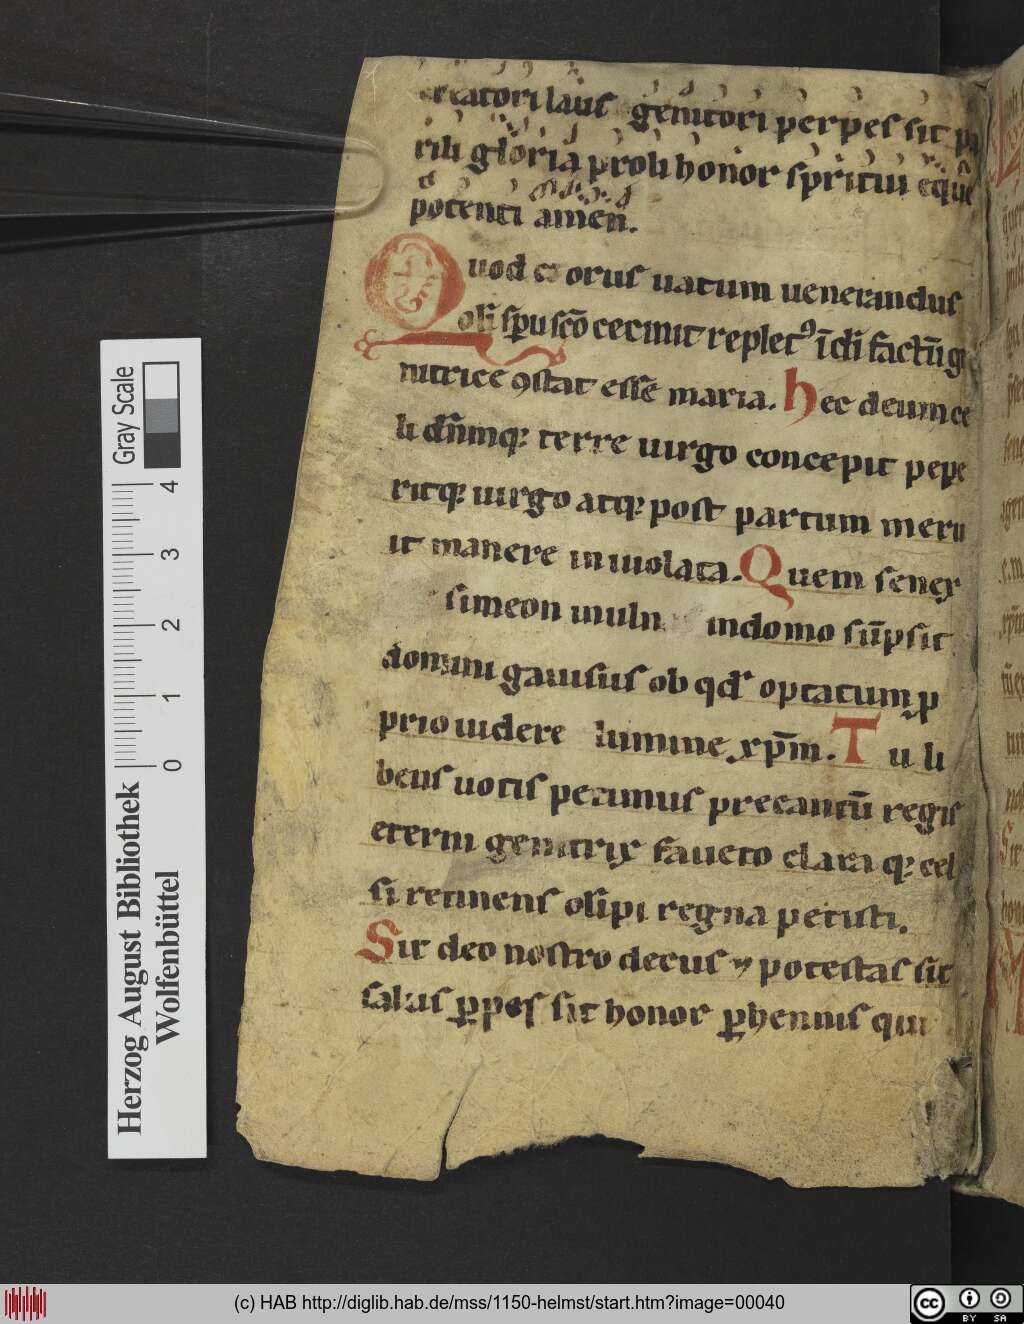 creatori laus genitori perpes sit pa
rili gloria proli honor spiritui eq̄ue
potenti amen.
Quod chorus uatum uenerandus
oli sp̄u sc̄o cecinit replet⁹ ī di factū ge
nitrice ꝯstat esse maria. Hec deum ce
li dn̄mq; terre uirgo concepit pepe
ritq; uirgo atq; post partum meru
it manere inuiolata. Quem senex
simeon inuln indomo sūpsit
domini gauisus ob qd' optatum ꝓ
prio uidere lumine xp̄m. Tu li
bens uotis petimus precantū regis
eterni genitrix faueto clara q; cel
si retinens olipi regna petisti.
Sit deo nostro decus ⁊ potestas sit
salus ꝑpes sit honor ꝑhennis qui
Gray Scale
0 1 2 3 4
Herzog August Bibliothek
Wolfenbüttel
(c) HAB http://diglib.hab.de/mss/1150-helmst/start.htm?image=00040
cc BY SA